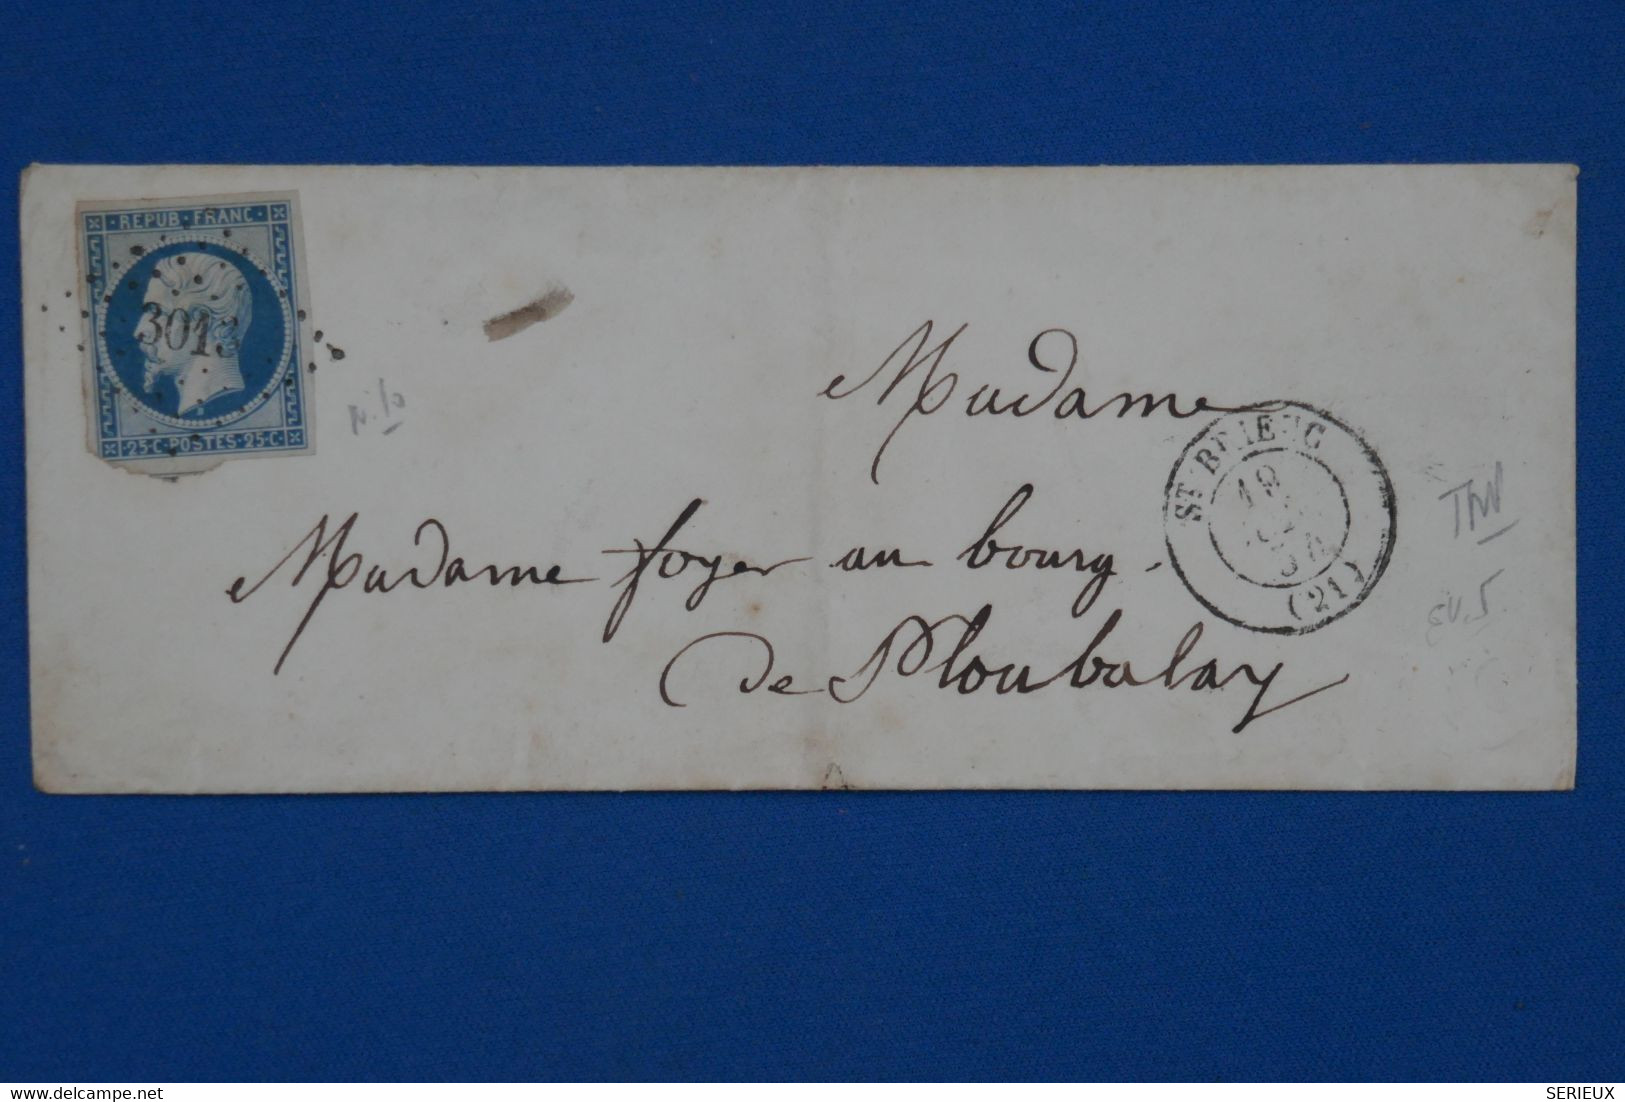 REPUB·FRANC·
3013
25·C·POSTES·25·C·
N. 10
Madame
ST BRIEUC
19
54
(21)
Madame foyer au bourg
de Ploubalay
delcampe.net
SERIEUX